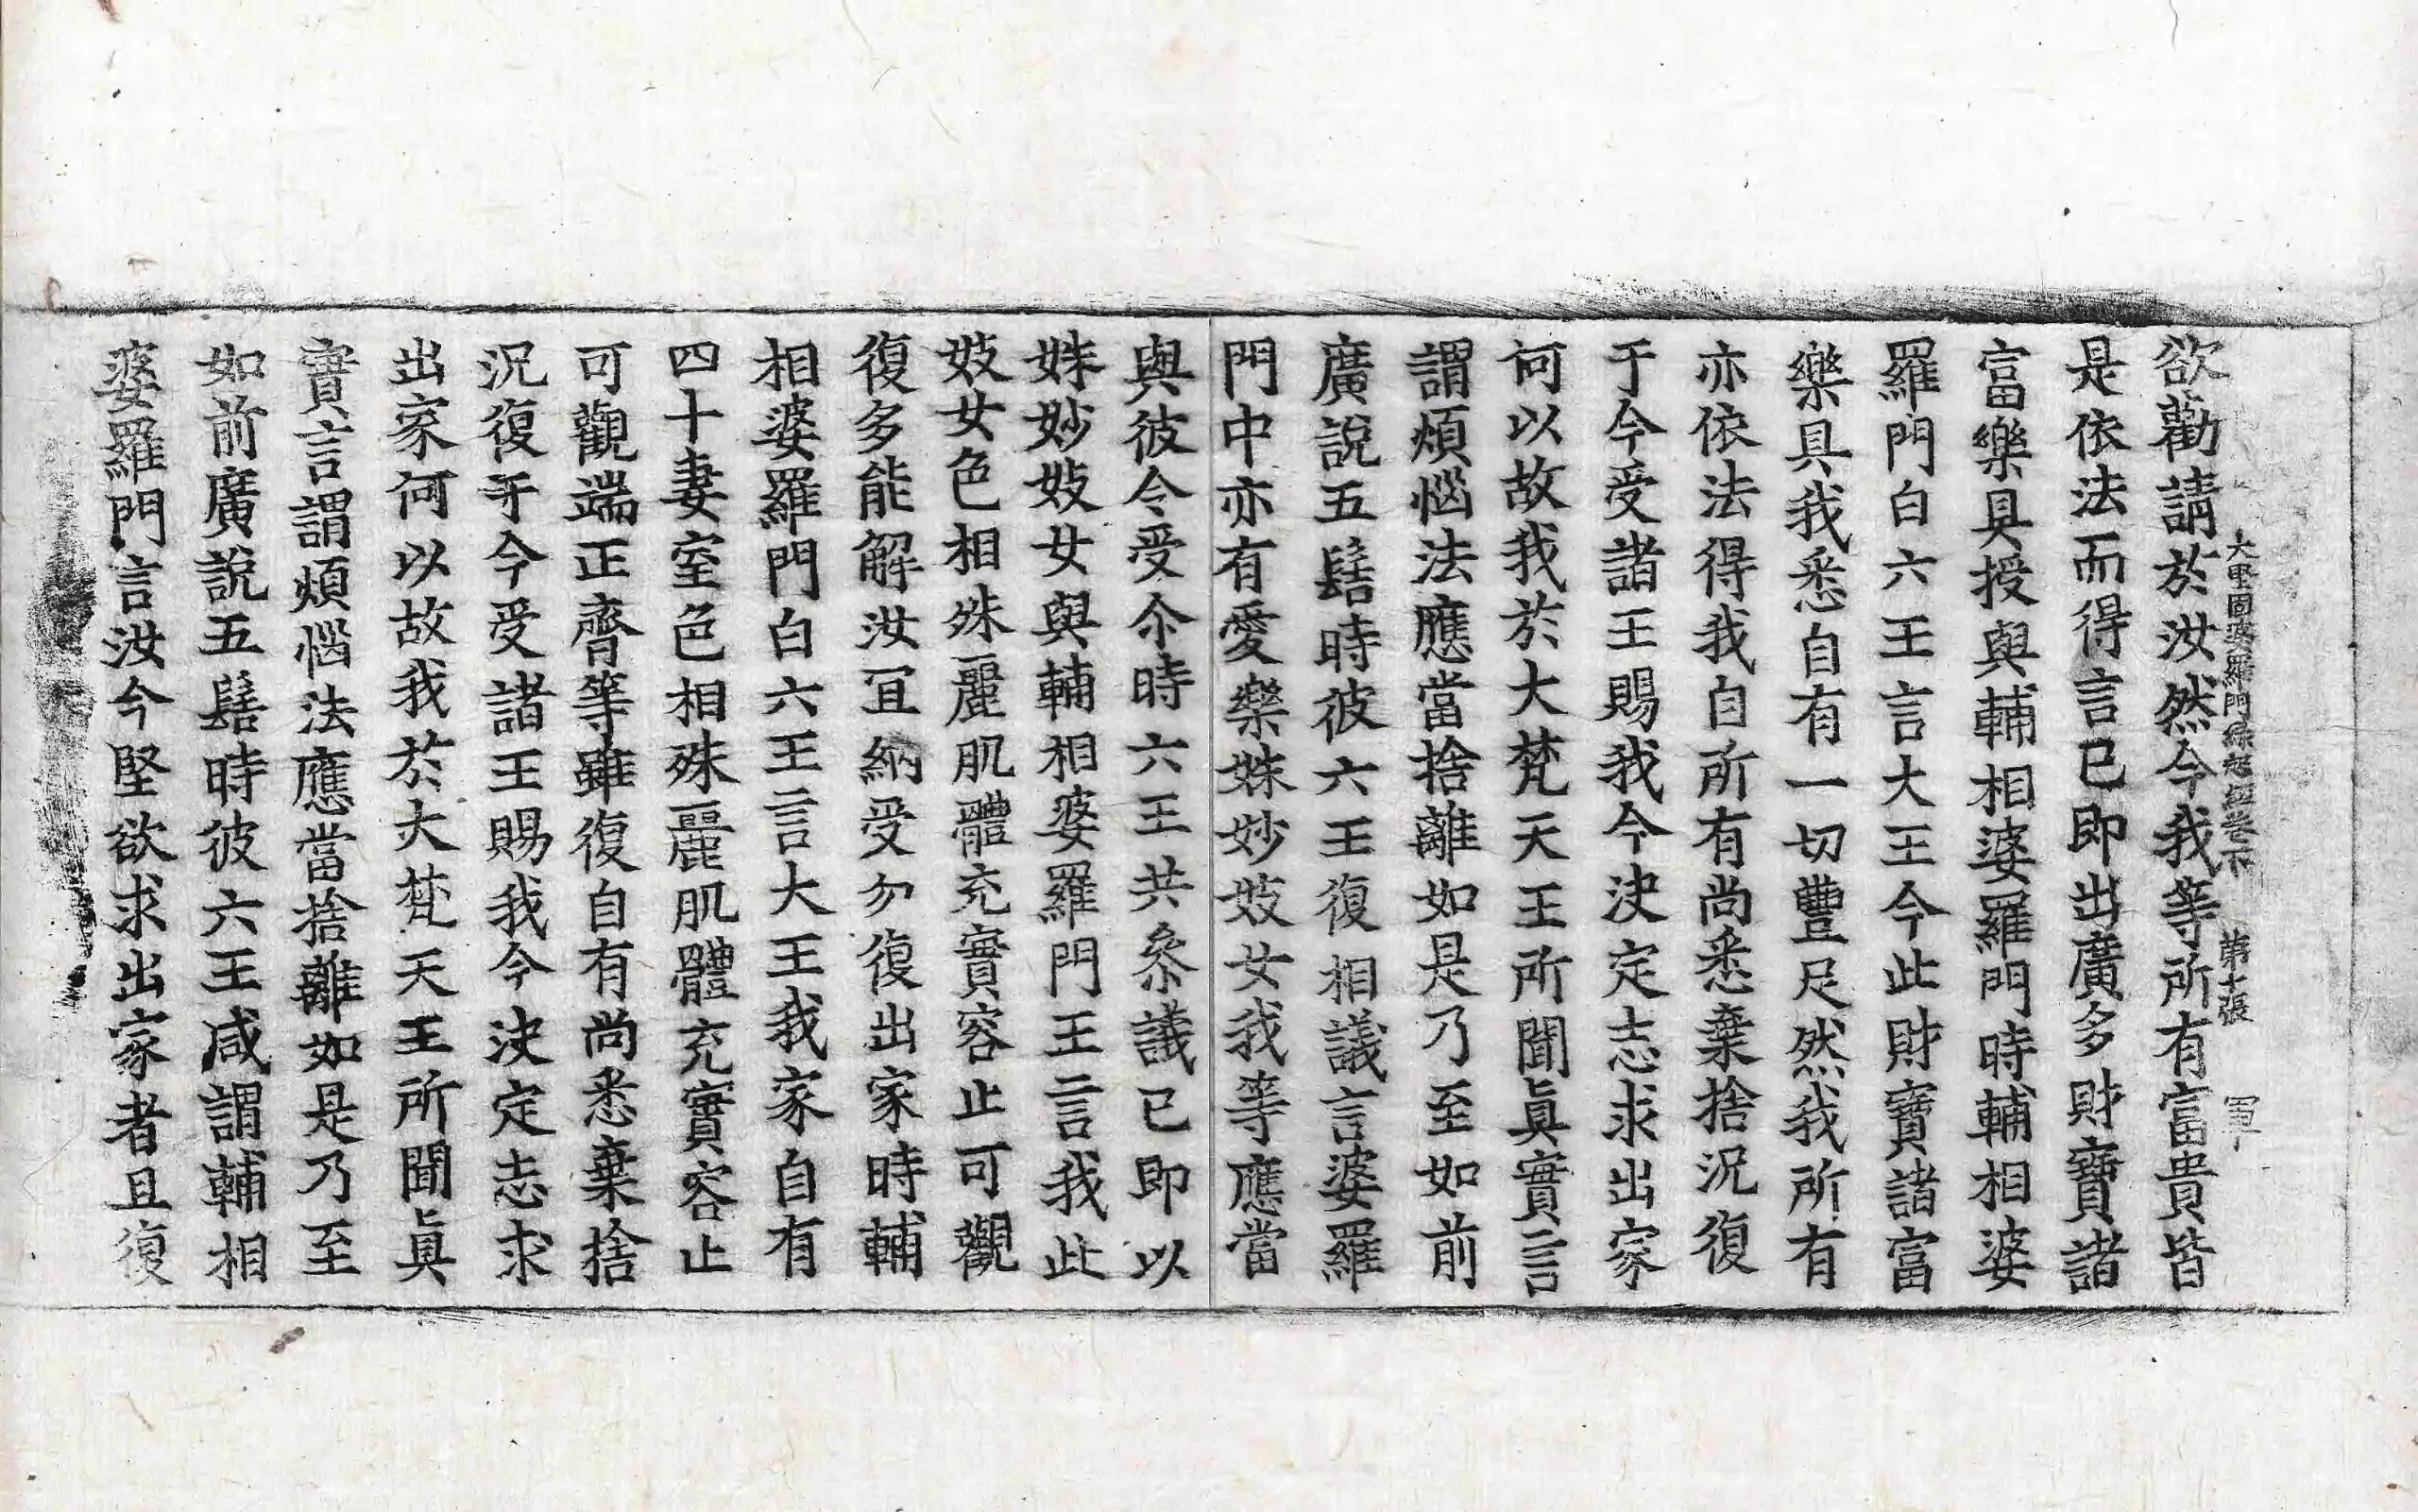 大堅固婆羅門緣起經卷下 第十張 軍
欲勸請於汝然今我等所有富貴皆
是依法而得言已即出廣多財寶諸
富樂具授與輔相婆羅門時輔相婆
羅門白六王言大王今此財寶諸富
樂具我悉自有一切豐足然我所有
亦依法得我自所有尚悉棄捨況復
于今受諸王賜我今決定志求出家
何以故我於大梵天王所聞眞實言
謂煩惱法應當捨離如是乃至如前
廣說五髻時彼六王復相議言婆羅
門中亦有愛樂姝妙妓女我等應當
與彼令受尒時六王共叅議已即以
姝妙妓女與輔相婆羅門王言我此
妓女色相殊麗肌體充實容止可觀
復多能解汝冝納受勿復出家時輔
相婆羅門白六王言大王我家自有
四十妻室色相殊麗肌體充實容止
可觀端正齊等雖復自有尚悉棄捨
況復于今受諸王賜我今決定志求
出家何以故我於大梵天王所聞眞
實言謂煩惱法應當捨離如是乃至
如前廣說五髻時彼六王咸謂輔相
婆羅門言汝今堅欲求出家者且復